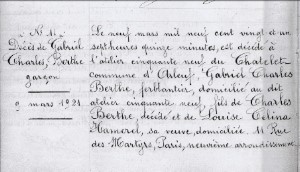 N. 11.
Décès de Gabriel
Charles, Berthe
garçon
9 mars 1921.
Le neuf mars mil neuf cent vingt et un
sept heures quinze minutes, est décédé à
l'atelier cinquante neuf du Chatelet
commune d'Arleuf. Gabriel Charles
Berthe, ferblantier, domicilié au dit
atelier cinquante neuf, fils de Charles
Berthe, décédé et de Louise Celina
Hamerel, sa veuve, domiciliée 11 Rue
des Martyrs, Paris, neuvième arrondissement